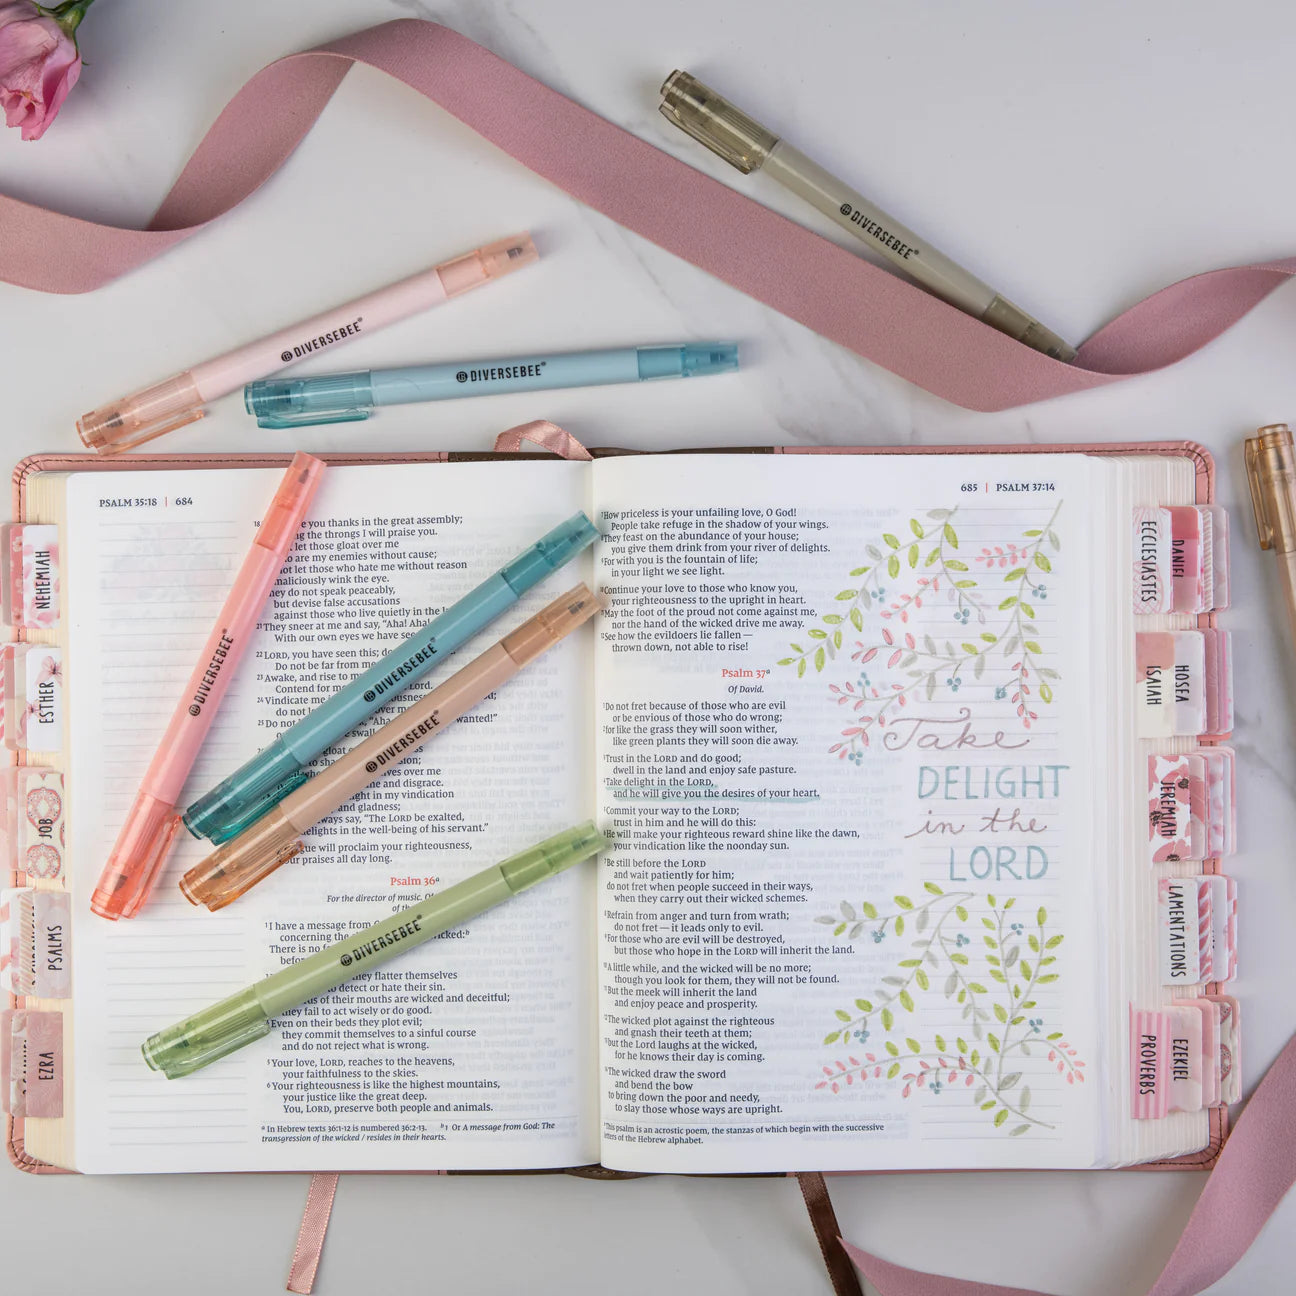 DIVERSEBEE
DIVERSEBEE
DIVERSEBEE
PSALM 35:18 | 684
18
you thanks in the great assembly;
the throngs I will praise you.
let those gloat over me
are my enemies without cause;
not let those who hate me without reason
maliciously wink the eye.
They do not speak peaceably,
but devise false accusations
against those who live quietly in the
21 They sneer at me and say, “Aha! Aha!
With our own eyes we have
22 LORD, you have seen this; do
Do not be far from me, Lord.
23 Awake, and rise to my
Contend for me
24 Vindicate me
do not
over me
25 Do not
“Aha
wanted!”
gloat over me
and disgrace.
delight in my vindication
and gladness;
always say, “The LORD be exalted,
delights in the well-being of his servant.”
tongue will proclaim your righteousness,
your praises all day long.
Psalm 36a
For the director of music.
1 I have a message from
concerning the
wicked:b
There is no
they flatter themselves
to detect or hate their sin.
of their mouths are wicked and deceitful;
they fail to act wisely or do good.
4 Even on their beds they plot evil;
they commit themselves to a sinful course
and do not reject what is wrong.
5 Your love, LORD, reaches to the heavens,
your faithfulness to the skies.
6 Your righteousness is like the highest mountains,
your justice like the great deep.
You, LORD, preserve both people and animals.
a In Hebrew texts 36:1-12 is numbered 36:2-13. b 1 Or A message from God: The
transgression of the wicked / resides in their hearts.
DIVERSEBEE
DIVERSEBEE
DIVERSEBEE
DIVERSEBEE
NEHEMIAH
ESTHER
JOB
PSALMS
EZRA
685 | PSALM 37:14
7 How priceless is your unfailing love, O God!
People take refuge in the shadow of your wings.
8 They feast on the abundance of your house;
you give them drink from your river of delights.
9 For with you is the fountain of life;
in your light we see light.
10 Continue your love to those who know you,
your righteousness to the upright in heart.
11 May the foot of the proud not come against me,
nor the hand of the wicked drive me away.
12 See how the evildoers lie fallen —
thrown down, not able to rise!
Psalm 37a
Of David.
1 Do not fret because of those who are evil
or be envious of those who do wrong;
2 for like the grass they will soon wither,
like green plants they will soon die away.
3 Trust in the LORD and do good;
dwell in the land and enjoy safe pasture.
4 Take delight in the LORD,
and he will give you the desires of your heart.
5 Commit your way to the LORD;
trust in him and he will do this:
6 He will make your righteous reward shine like the dawn,
your vindication like the noonday sun.
7 Be still before the LORD
and wait patiently for him;
do not fret when people succeed in their ways,
when they carry out their wicked schemes.
8 Refrain from anger and turn from wrath;
do not fret — it leads only to evil.
9 For those who are evil will be destroyed,
but those who hope in the LORD will inherit the land.
10 A little while, and the wicked will be no more;
though you look for them, they will not be found.
11 But the meek will inherit the land
and enjoy peace and prosperity.
12 The wicked plot against the righteous
and gnash their teeth at them;
13 but the Lord laughs at the wicked,
for he knows their day is coming.
14 The wicked draw the sword
and bend the bow
to bring down the poor and needy,
to slay those whose ways are upright.
This psalm is an acrostic poem, the stanzas of which begin with the successive
letters of the Hebrew alphabet.
Take
DELIGHT
in the
LORD
ECCLESIASTES
DANIEL
ISAIAH
HOSEA
JEREMIAH
LAMENTATIONS
PROVERBS
EZEKIEL